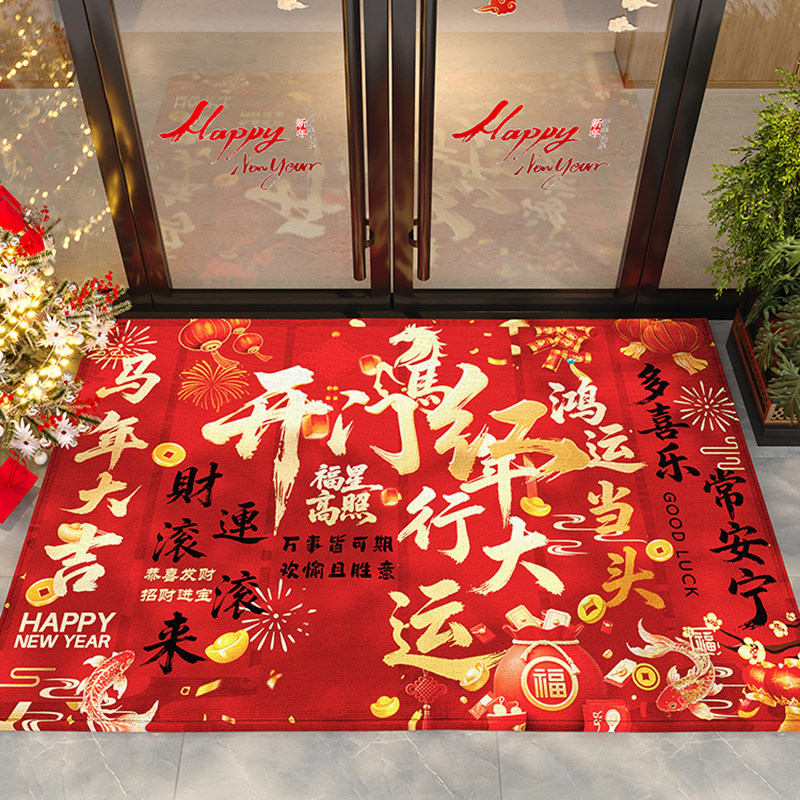 Happy
New Year
新年
Happy
New Year
新年
马年大吉
HAPPY
NEW YEAR
財運
滚滚
来
恭喜发财
招财进宝
开门红
福星
高照
万事皆可期
欢愉且胜意
马年
行大运
鸿运当头
多喜乐
常安宁
GOOD LUCK
福
福